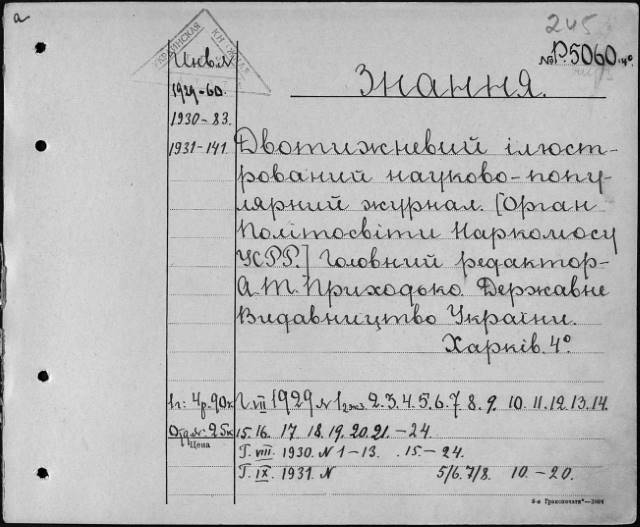 а
245
УКРАИНСКАЯ КНИЖНАЯ
№Р.5060 4º
Знання.
Инв.№
1929-60.
1930-83.
1931-141.
Двотижневий ілюст-
рований науково-попу-
лярний журнал. [Орган
Політосвіти Наркомосу
УСРР.] Головний редактор-
А.Т. Приходько. Державне
Видавництво України.
Харків. 4º
1г: 4р.90к Г. VII 1929 № 1 2. 3. 4. 5. 6. 7. 8. 9. 10. 11. 12. 13. 14.
Отд.№: 25к 15. 16. 17 18. 19. 20. 21. – 24.
Цена
Г. VIII. 1930. N 1 – 13. . 15. – 24.
Г. IX. 1931. N 5/6. 7/8. 10. – 20.